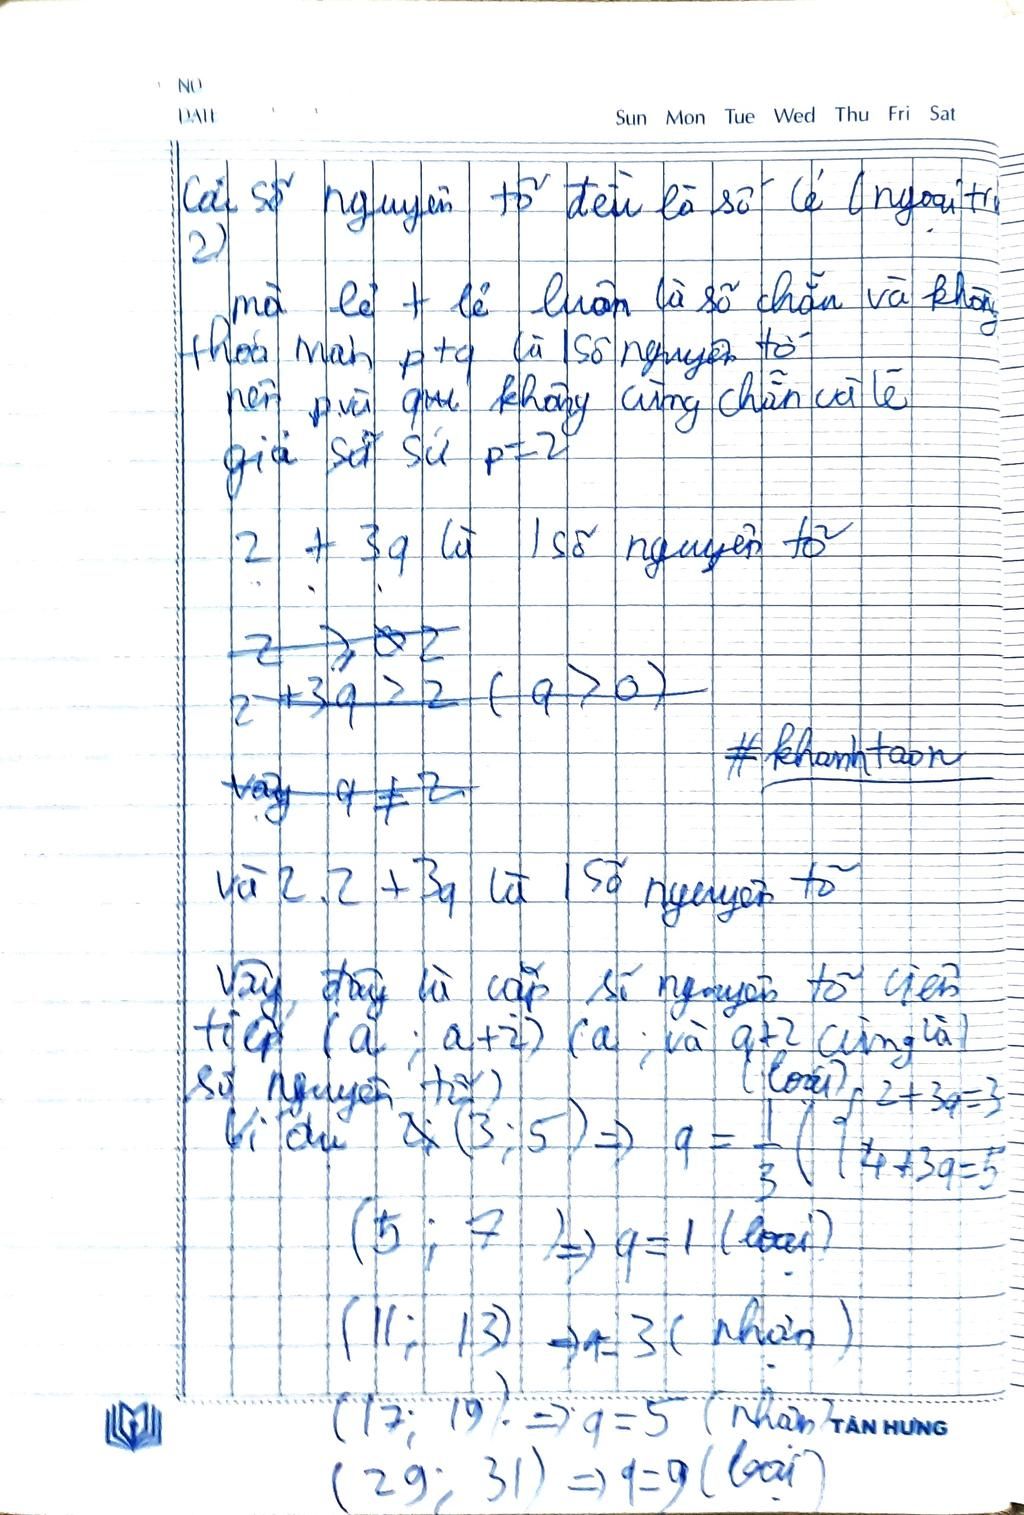 NO
DATE
Sun Mon Tue Wed Thu Fri Sat
Các số nguyên tố đều là số lẻ (ngoại trừ
2)
mà lẻ + lẻ luôn là số chẵn và không
thoả mãn p+q là 1 số nguyên tố
nên p và q không cùng chẵn và lẻ
giả sử p=2
2 + 3q là 1 số nguyên tố
2 + 3q > 2 ( q > 0 )
# khanhtaon
vậy q ≠ 2
và 2.2 + 3q là 1 số nguyên tố
Vậy, đây là cặp số nguyên tố liên
tiếp (a ; a+2) (a ; và a+2 cùng là
số nguyên tố)
(loại) { 2+3q=3
Ví dụ (3;5) => q = 1/3
4+3q=5
(5 ; 7 ) => q=1 (loại)
(11; 13) => q= 3 ( nhận )
(17; 19) => q=5 (nhận)
TÂN HƯNG
(29; 31) => q=9 (loại)